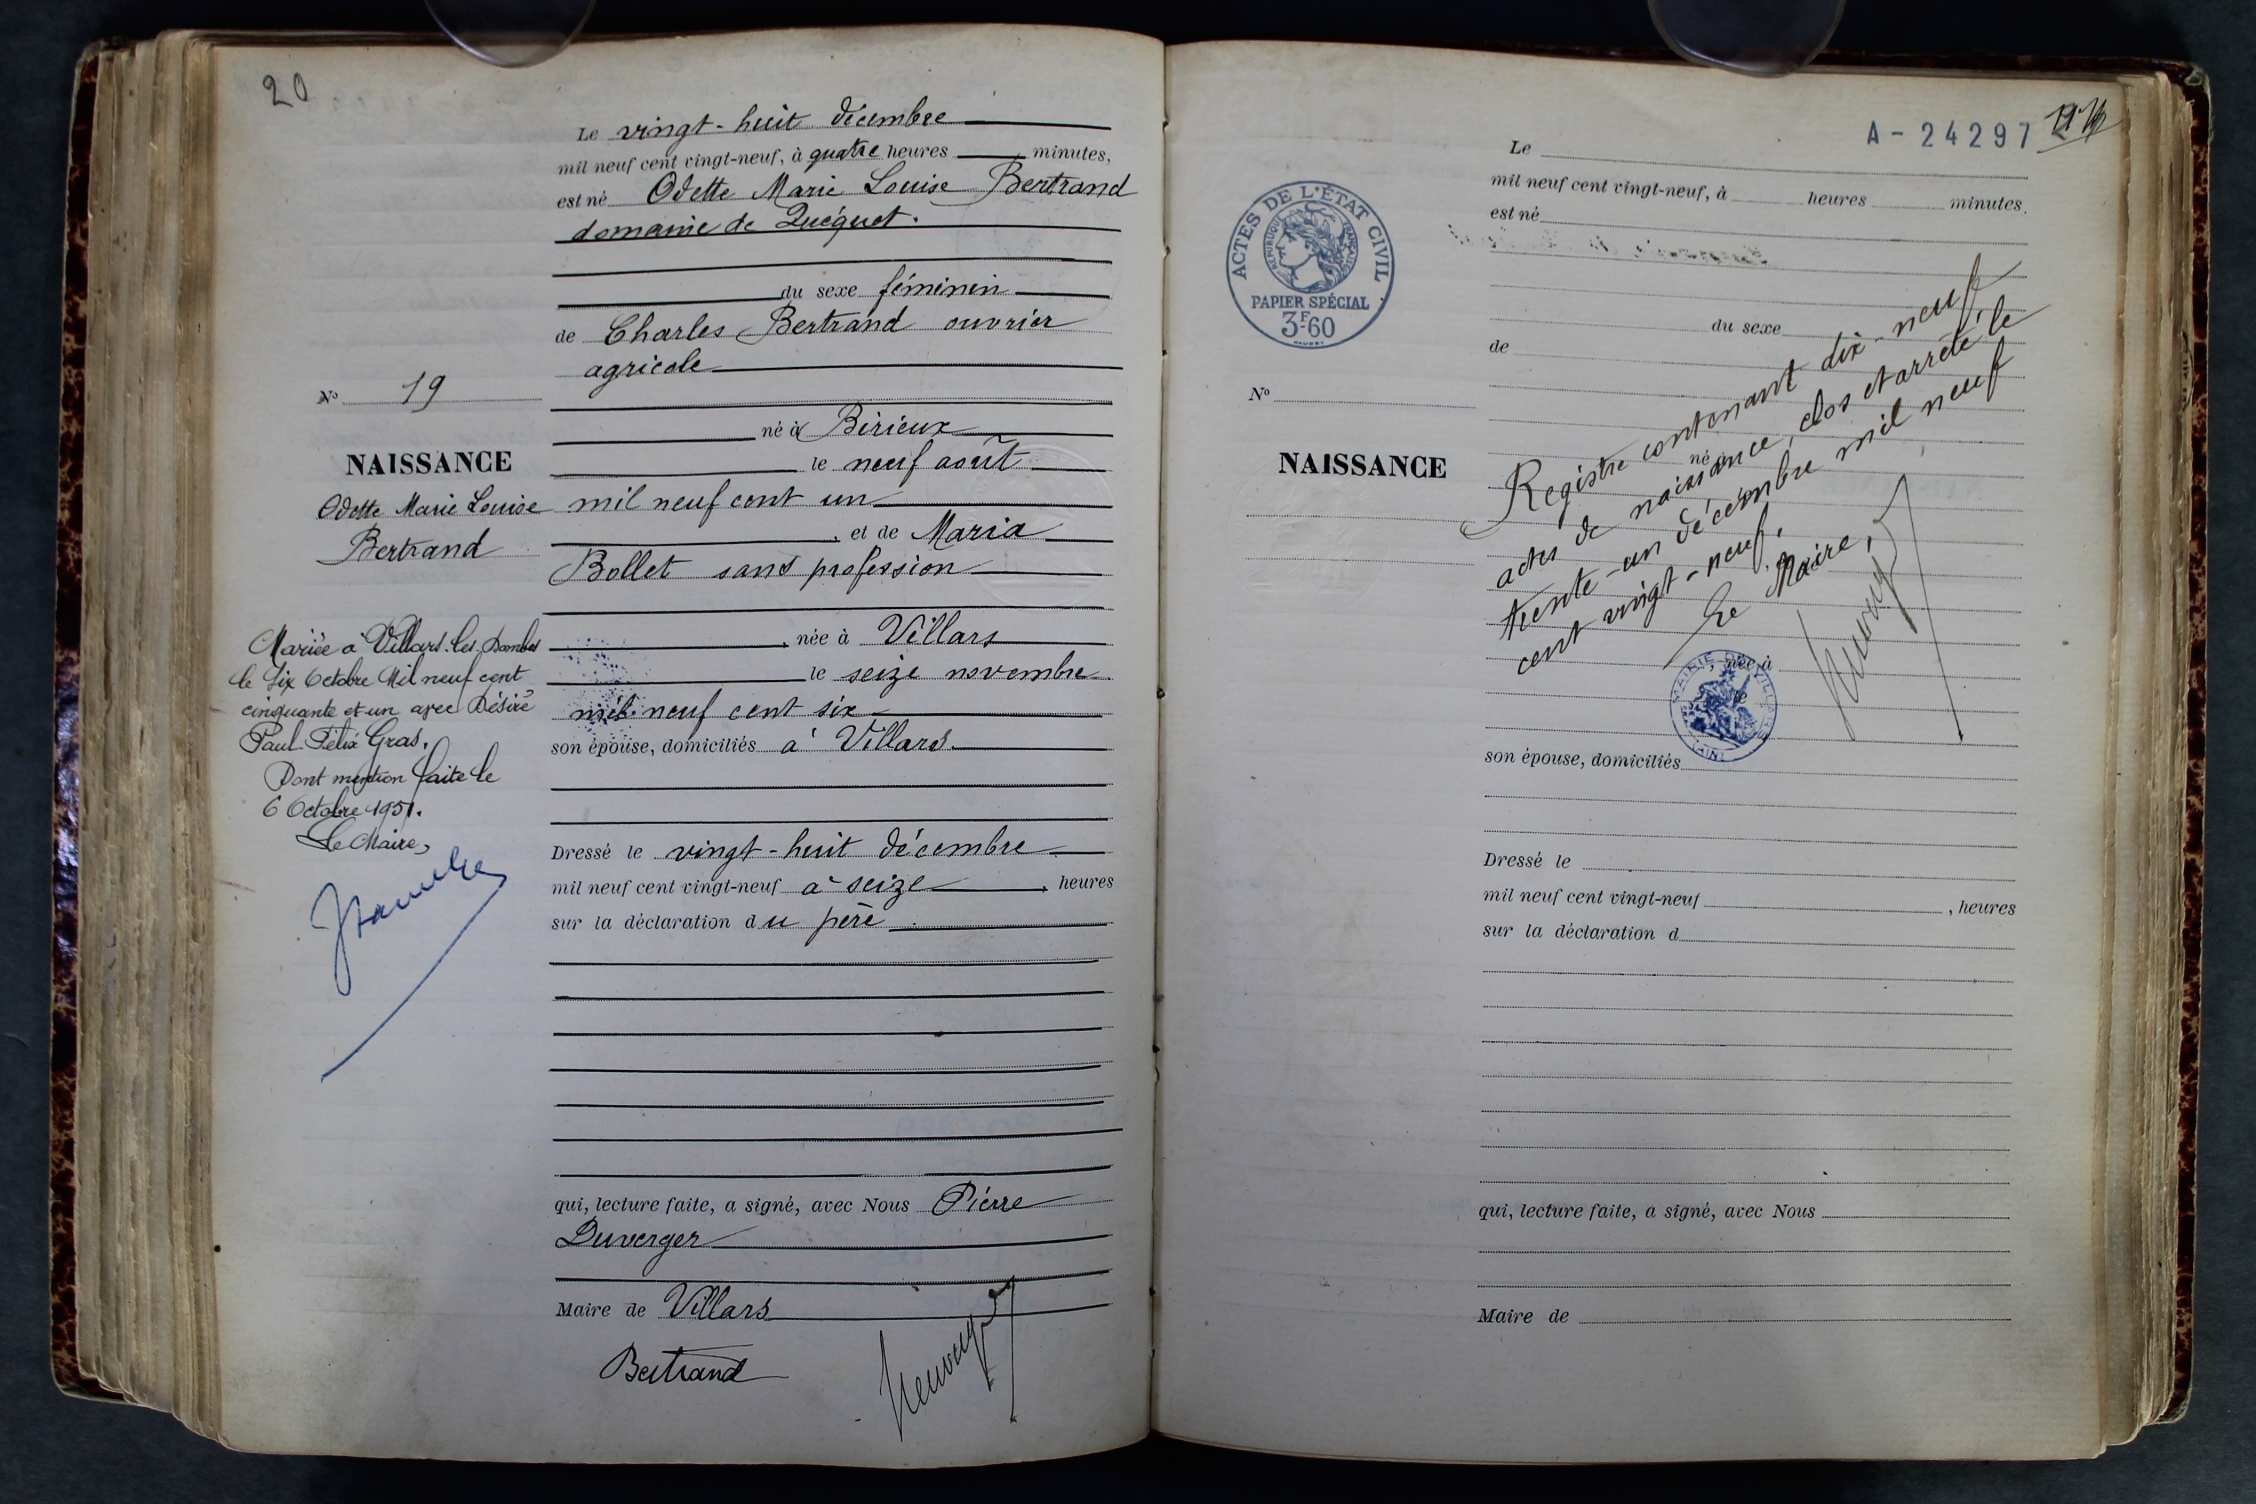 20
Le vingt-huit décembre
mil neuf cent vingt-neuf, à quatre heures minutes,
est né Odette Marie Louise Bertrand
domaine de Quéquet.
du sexe féminin
de Charles Bertrand ouvrier
agricole
né à Birieux
le neuf août
mil neuf cent un
, et de Maria
Bollet sans profession
, née à Villars
le seize novembre
mil neuf cent six
son épouse, domiciliés à Villars
Dressé le vingt-huit décembre
mil neuf cent vingt-neuf à seize , heures
sur la déclaration du père
qui, lecture faite, a signé, avec Nous Pierre
Duverger
Maire de Villars
Bertrand
No 19
NAISSANCE
Odette Marie Louise
Bertrand
Mariée à Villars-les-Dombes
le Six Octobre Mil neuf cent
cinquante et un avec Désiré
Paul Félix Gras.
Dont mention faite le
6 Octobre 1951.
Le Maire,
A-24297
ACTES DE L'ÉTAT CIVIL
RÉPUBLIQUE FRANÇAISE
PAPIER SPÉCIAL
3F60
No
NAISSANCE
Le
mil neuf cent vingt-neuf, à heures minutes.
est né
du sexe
de
né à
Registre contenant dix-neuf
actes de naissance, clos et arrêté le
trente-un décembre mil neuf
cent vingt-neuf.
Le Maire,
, née à
le
MAIRIE DE VILLARS
(AIN)
son épouse, domiciliés
Dressé le
mil neuf cent vingt-neuf , heures
sur la déclaration d
qui, lecture faite, a signé, avec Nous
Maire de